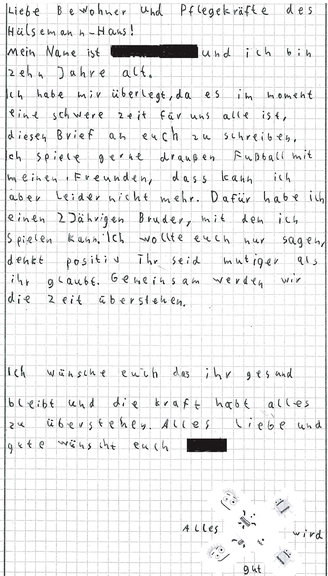 Liebe Bewohner und Pflegekräfte des
Hülsemann-Haus!
Mein Name ist und ich bin
zehn Jahre alt.
Ich habe mir überlegt, da es im moment
eine schwere zeit für uns alle ist,
diesen Brief an euch zu schreiben.
Ich spiele gerne draußen Fußball mit
meinen Freunden, dass kann ich
aber leider nicht mehr. Dafür habe ich
einen 2Jährigen Bruder, mit den ich
spielen kann. Ich wollte euch nur sagen,
denkt positiv ihr seid mutiger als
ihr glaubt. Gemeinsam werden wir
die zeit überstehen.
Ich wünsche euch das ihr gesund
bleibt und die kraft habt alles
zu überstehen. Alles liebe und
gute wünscht euch
Alles wird
gut